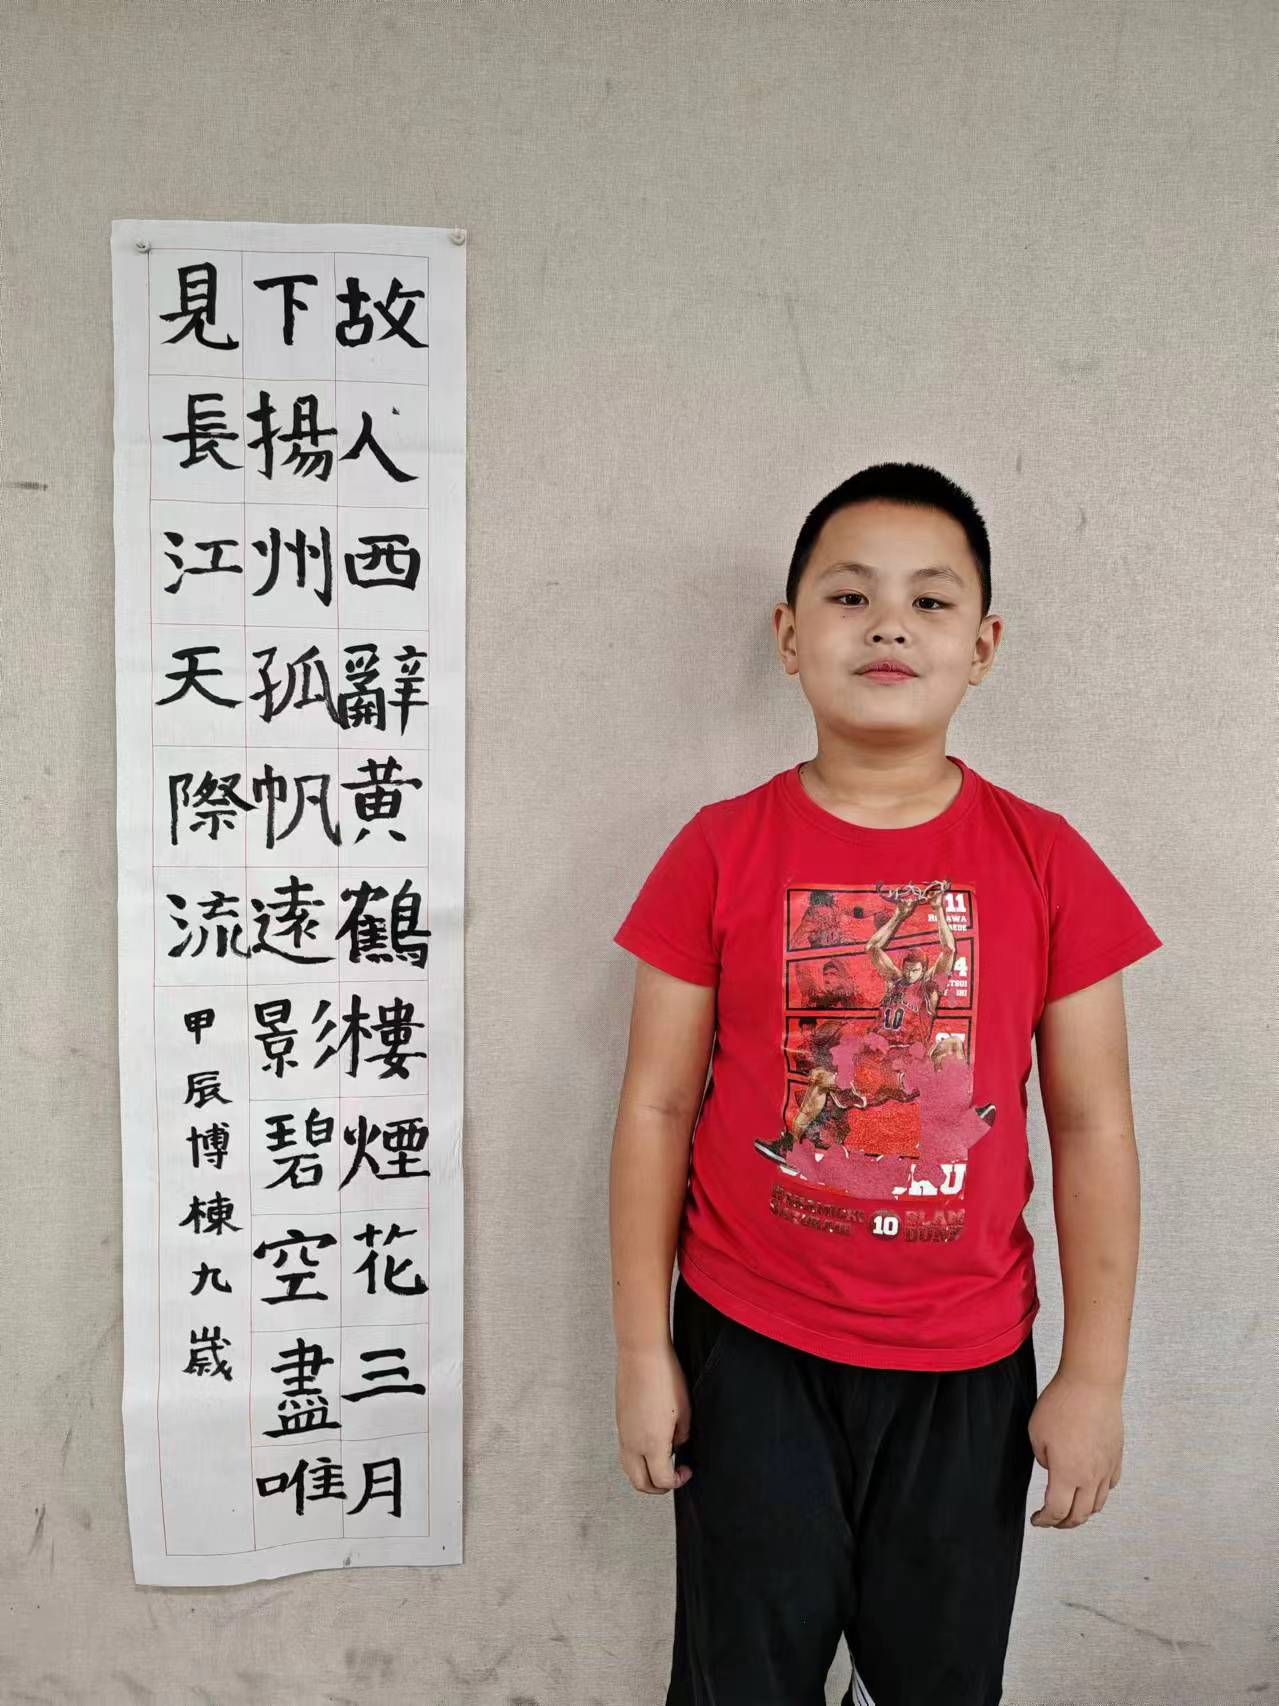 故人西辭黄鶴樓煙花三月
下揚州孤帆遠影碧空盡唯
見長江天際流
甲辰博棟九歲
11
4
10
10
SLAM
DUNK